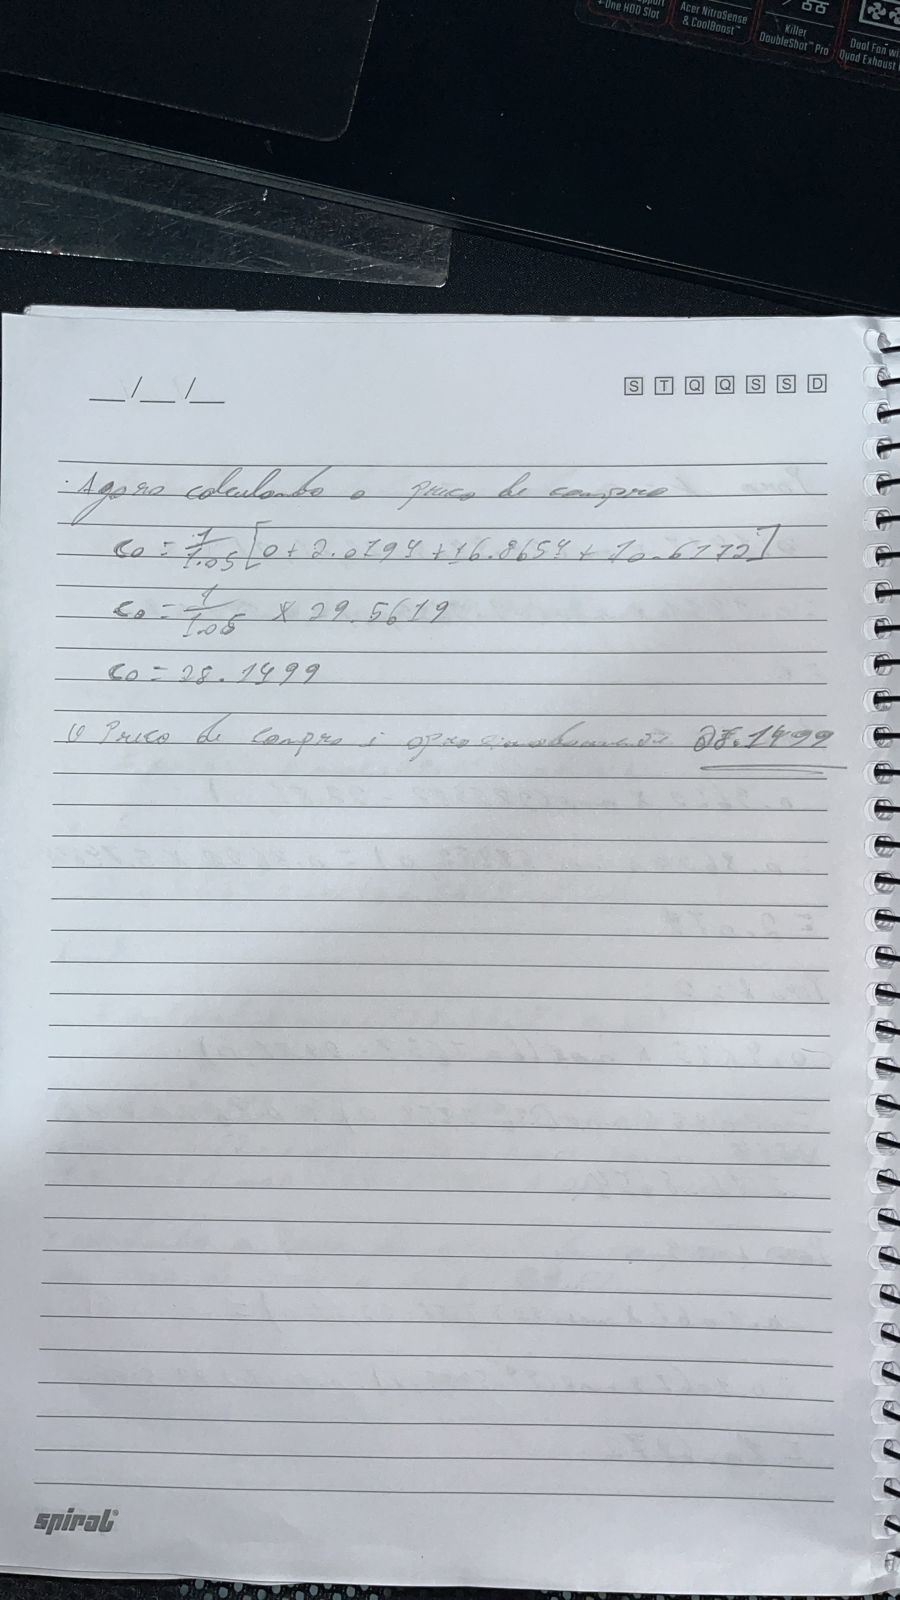 + One HDD Slot
Acer NitroSense
& CoolBoost™
Killer
DoubleShot™ Pro
Dual Fan wi
Quad Exhaust
__/__/__
S T Q Q S S D
. Agora calculando o preço de compra
C0 = 1/1.05 [0 + 2.0794 + 16.8654 + 10.6172]
C0 = 1/1.05 × 29.5619
C0 = 28.1499
O Preço de compra é aproximadamente 28.1499
spiral®